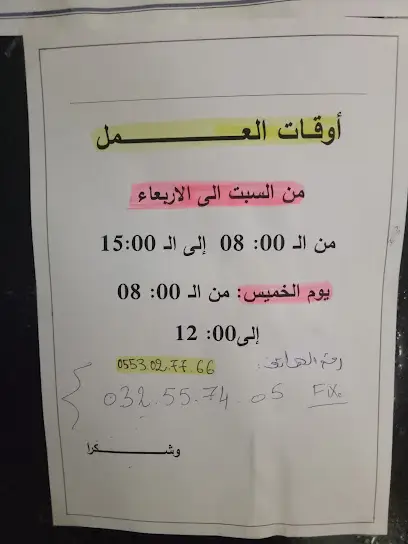 أوقات العـــــــــــمل
من السبت الى الاربعاء
من الـ 00: 08 إلى الـ 15:00
يوم الخميس: من الـ 00: 08
إلى00: 12
رقم الهاتف: 0553.02.77.66
032.55.74.05 Fix
وشـــــــــكرا